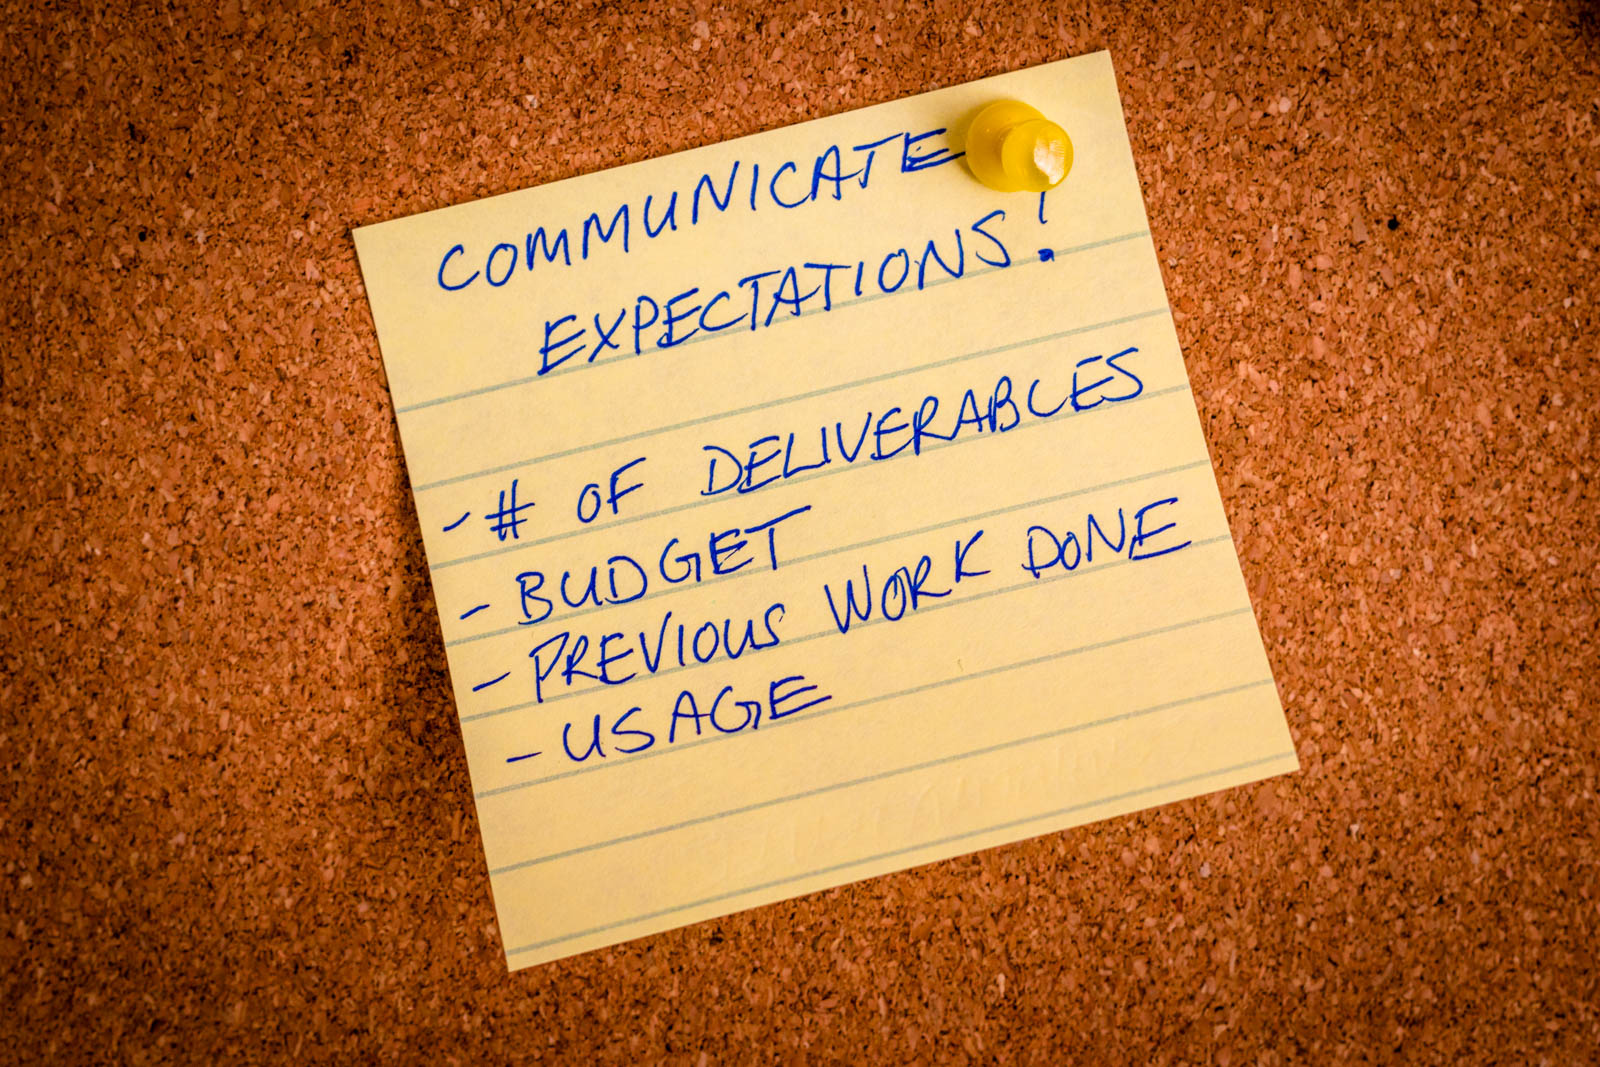 COMMUNICATE
EXPECTATIONS!
- # OF DELIVERABLES
- BUDGET
- PREVIOUS WORK DONE
- USAGE